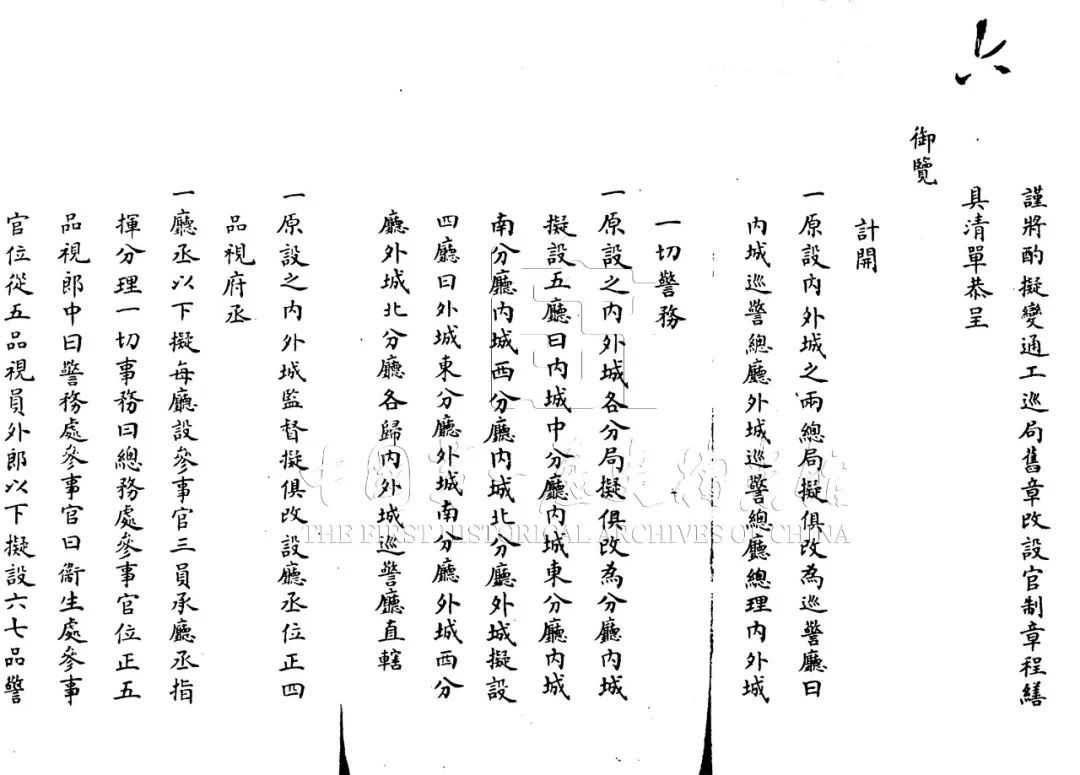 六
謹將酌擬變通工巡局舊章改設官制章程繕
具清單恭呈
御覽
計開
一原設內外城之兩總局擬俱改為巡警廳曰
內城巡警總廳外城巡警總廳總理內外城
一切警務
一原設之內外城各分局擬俱改為分廳內城
擬設五廳曰內城中分廳內城東分廳內城
南分廳內城西分廳內城北分廳外城擬設
四廳曰外城東分廳外城南分廳外城西分
廳外城北分廳各歸內外城巡警廳直轄
一原設之內外城監督擬俱改設廳丞位正四
品視府丞
一廳丞以下擬每廳設參事官三員承廳丞指
揮分理一切事務曰總務處參事官位正五
品視郎中曰警務處參事官曰衞生處參事
官位從五品視員外郎以下擬設六七品警
中國第一歷史檔案館
THE FIRST HISTORICAL ARCHIVES OF CHINA